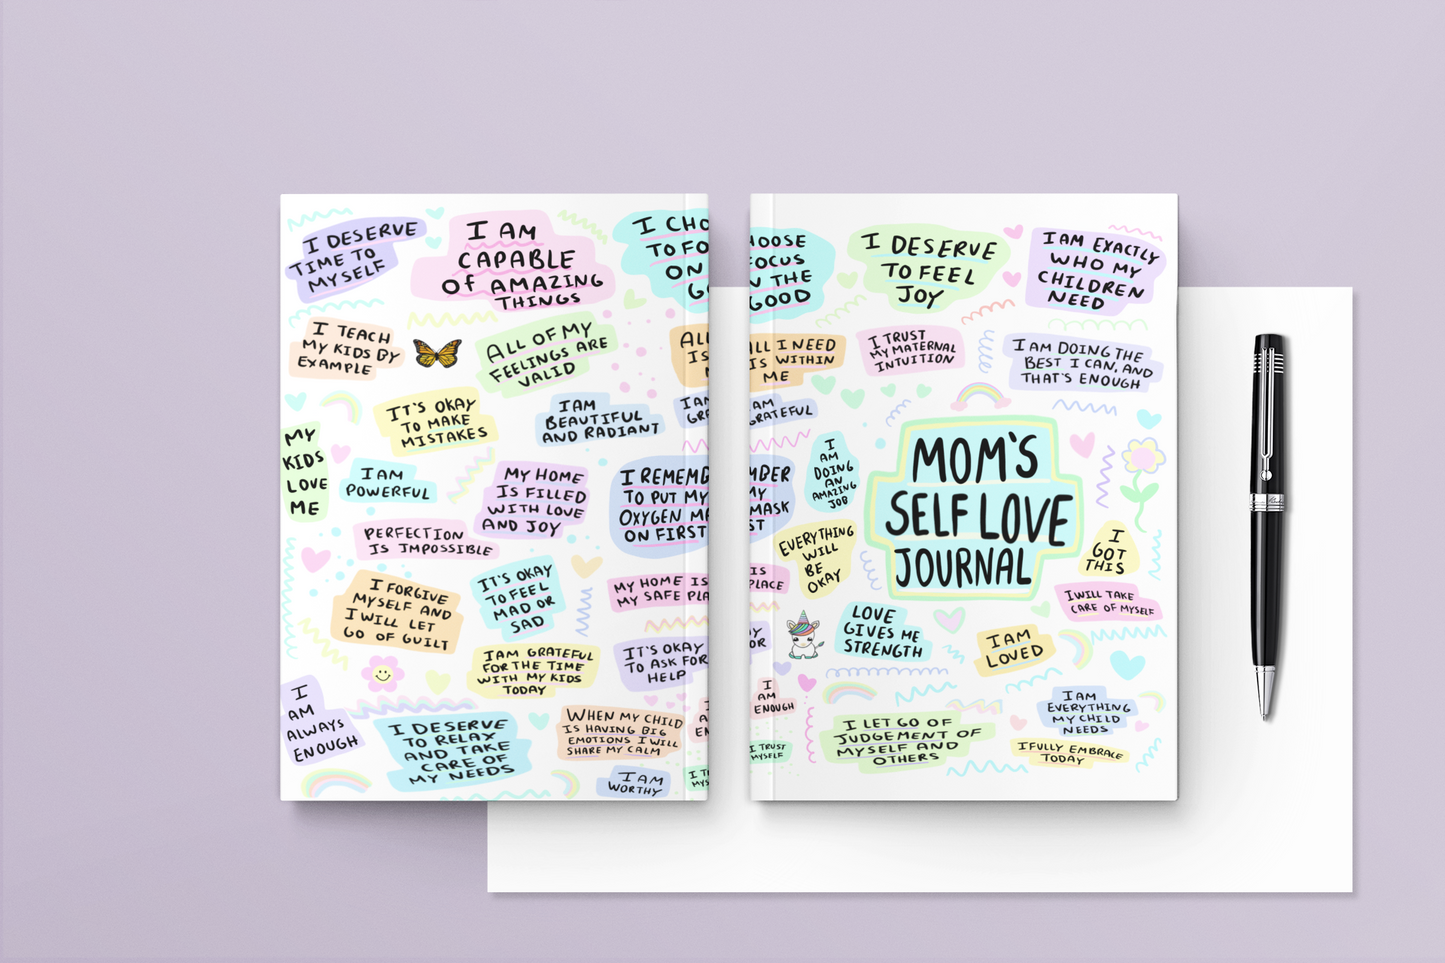 I DESERVE
TIME TO
MYSELF
I AM
CAPABLE
OF AMAZING
THINGS
I CHO
TO FO
ON
GO
I TEACH
MY KIDS BY
EXAMPLE
ALL OF MY
FEELINGS ARE
VALID
ALL
IS
IT'S OKAY
TO MAKE
MISTAKES
I AM
BEAUTIFUL
AND RADIANT
I AM
GRA
MY
KIDS
LOVE
ME
I AM
POWERFUL
MY HOME
IS FILLED
WITH LOVE
AND JOY
I REMEMB
TO PUT MY
OXYGEN MA
ON FIRST
PERFECTION
IS IMPOSSIBLE
I FORGIVE
MYSELF AND
I WILL LET
GO OF GUILT
IT'S OKAY
TO FEEL
MAD OR
SAD
MY HOME IS
MY SAFE PLA
I AM GRATEFUL
FOR THE TIME
WITH MY KIDS
TODAY
IT'S OKAY
TO ASK FOR
HELP
I
AM
ALWAYS
ENOUGH
I DESERVE
TO RELAX
AND TAKE
CARE OF
MY NEEDS
WHEN MY CHILD
IS HAVING BIG
EMOTIONS I WILL
SHARE MY CALM
I
A
EN
I AM
WORTHY
I T
MYS
HOOSE
OCUS
N THE
GOOD
I DESERVE
TO FEEL
JOY
I AM EXACTLY
WHO MY
CHILDREN
NEED
ALL I NEED
IS WITHIN
ME
I TRUST
MY MATERNAL
INTUITION
I AM DOING THE
BEST I CAN, AND
THAT'S ENOUGH
AM
GRATEFUL
I
AM
DOING
AN
AMAZING
JOB
MOM'S
SELF LOVE
JOURNAL
MBER
MY
MASK
ST
EVERYTHING
WILL
BE
OKAY
I
GOT
THIS
IS
PLACE
I WILL TAKE
CARE OF MYSELF
LOVE
GIVES ME
STRENGTH
I AM
LOVED
Y
OR
I
AM
ENOUGH
I AM
EVERYTHING
MY CHILD
NEEDS
I LET GO OF
JUDGEMENT OF
MYSELF AND
OTHERS
I TRUST
MYSELF
I FULLY EMBRACE
TODAY